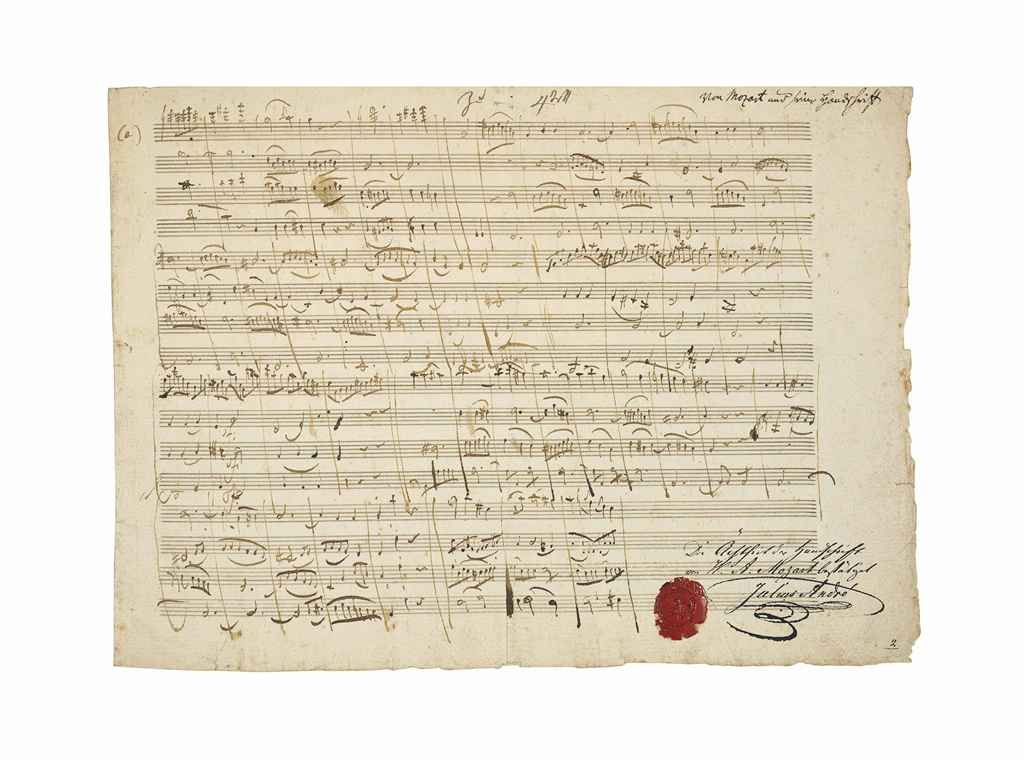 Zu
Von Mozart und seine Handschrift
(a)
Die Ächtheit der Handschrift
von W. A. Mozart bestätigt
Julius André
2